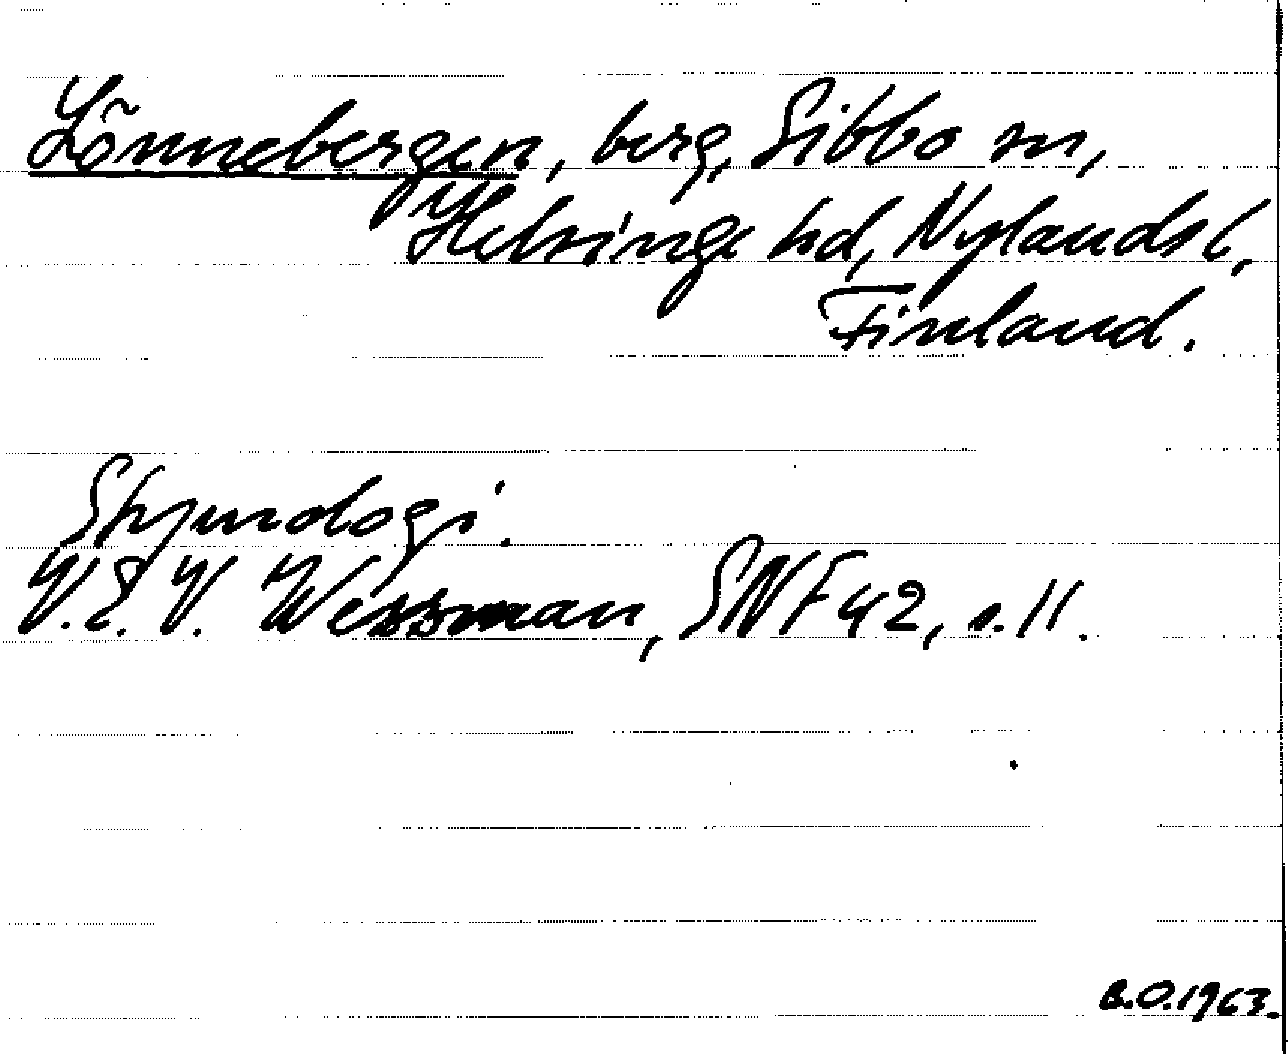 Lönnebergen, berg, Sibbo sn,
Helsinge hd, Nylands l,
Finland.
Etymologi.
V.E.V. Wessman, SNF 42, s. 11.
B.O. 1963.